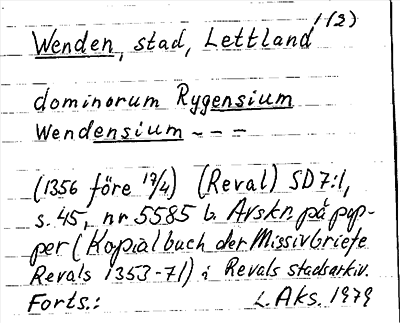 1(2)
Wenden, stad, Lettland
dominorum Rygensium
Wendensium - - -
(1356 före 17/4) (Reval) SD 7:1,
s. 45, nr 5585 b. Avskr. på pap-
per (Kopialbuch der Missivbriefe
Revals 1353-71) i Revals stadsarkiv.
Forts.: L. Aks. 1979